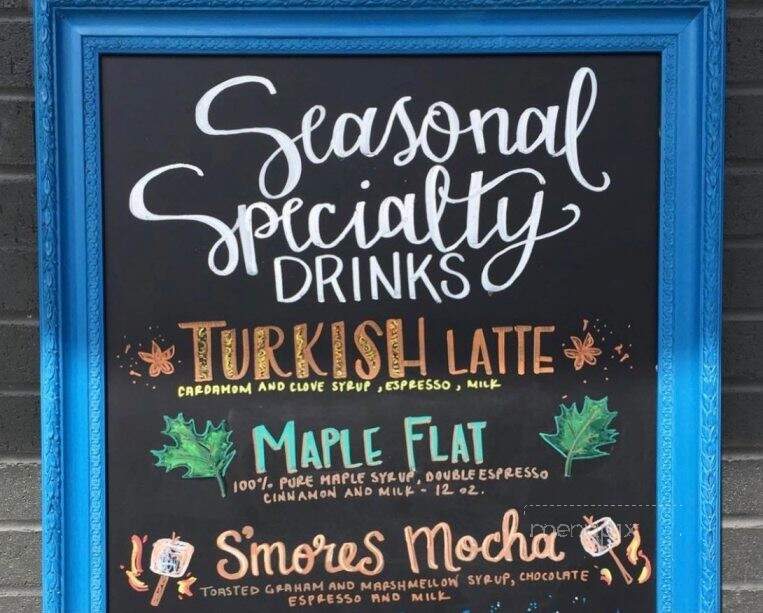 Seasonal
Specialty
DRINKS
TURKISH LATTE
CARDAMOM AND CLOVE SYRUP, ESPRESSO, MILK
MAPLE FLAT
100% PURE MAPLE SYRUP, DOUBLE ESPRESSO
CINNAMON AND MILK - 12 OZ.
menupix
S'mores Mocha
TOASTED GRAHAM AND MARSHMELLOW SYRUP, CHOCOLATE
ESPRESSO AND MILK